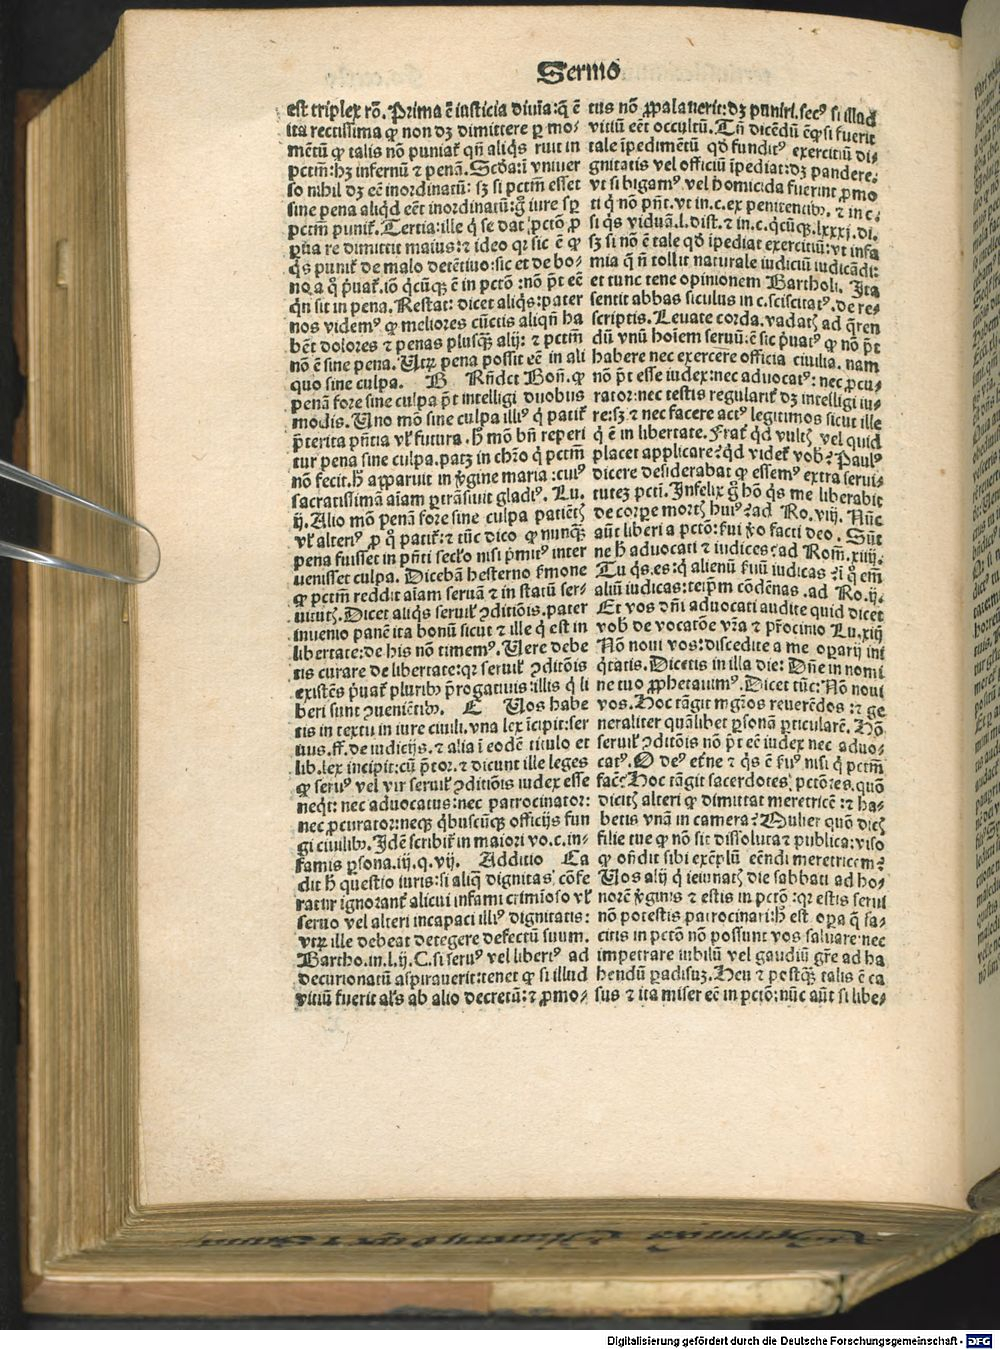 Sermo
est triplex rō. Prima ē iusticia diuīa: q̄ ē
ita rectissima ꝙ non dꝫ dimittere ꝑ mo-
mētū ꝙ talis nō puniat̄ qn̄ aliq̇s ruit in
pctm̄: hꝫ infernū ⁊ penā. Scd̄a: ī vniuer
so nihil dꝫ eē inordinatū: sꝫ si pctm̄ esset
sine pena aliqd̄ eēt inordinatū: g̊ iure sꝑ
pctm̄ punit̄. Tertia: ille q̇ se dat pctō ꝓ
ꝑua re dimittit maius: ⁊ ideo qꝛ sic ē ꝙ
q̇s punit̄ de malo detētiuo: sic et de bo-
no a q̊ ṗuat̄. iō q̇cūqꝫ ē in pctō: nō pt̄ eē
qn̄ sit in pena. Restat: dicet aliq̇s: pater
nos videmꝰ ꝙ meliores cūctis aliqn̄ ha
bēt dolores ⁊ penas plusqꝫ̄ alij: ⁊ pctm̄
nō ē sine pena. Utꝝ pena possit eē in ali
quo sine culpa. B Rn̄det Bon̄. ꝙ
penā fore sine culpa pt̄ intelligi duobus
modis. Uno mō sine culpa illiꝰ q̇ patit̄
p̄terita pn̄tia vl̓ futura. h̄ mō bn̄ reperi
tur pena sine culpa. patꝫ in chr̄o q̇ pctm̄
nō fecit. h̄ apparuit in v̓gine maria: cuiꝰ
sacratissimā aīam ꝑtrāsiuit gladiꝰ. Lu.
ij. Alio mō penā fore sine culpa patiētꝭ
vl̓ alteriꝰ ꝓ q̊ patit̄: ⁊ tūc dico ꝙ nunqꝫ̄
pena fuisset in pn̄ti secl̓o nisi p̓mitꝰ inter
uenisset culpa. Dicebā hesterno ẜmone
ꝙ pctm̄ reddit aīam seruā ⁊ in statū ser-
uitutꝭ. Dicet aliq̇s seruil̓ ꝯditiōis. pater
inuenio panē ita bonū sicut ⁊ ille q̇ est in
libertate: de his nō timemꝰ. Uere debe
tis curare de libertate: qꝛ seruil̓ ꝯditōis
existēs ṗuat̄ pluribꝰ p̄rogatiuis: illis q̇ li
beri sunt ꝯueniētibꝰ. C Uos habe
tis in textu in iure ciuili. vna lex īcipit: ser
uus. ff. de iudicijs. ⁊ alia ī eodē titulo et
lib. lex incipit: cū p̄tor. ⁊ dicunt ille leges
ꝙ seruꝰ vel vir seruil̓ ꝯditiōis iudex esse
neq̇t: nec aduocatus: nec patrocinator:
nec ꝓcurator: neqꝫ q̇buscūqꝫ officijs fun
gi ciuilibꝰ. Idē scribit̄ in maiori vo. c. in-
famis ꝑsona. iij. q. vij. Additio Ca
dit h̄ questio iuris: si aliq̄ dignitas cōfe
ratur ignorant̄ alicui infami crimīoso vl̓
seruo vel alteri incapaci illiꝰ dignitatis:
vtꝝ ille debeat detegere defectū suum.
Bartho. in. l. ij. C. si seruꝰ vel libertꝰ ad
decurionatū aspirauerit: tenet ꝙ si illud
vitiū fuerit al̓s ab alio decretū: ⁊ ꝓmo-
tus nō ꝓpalauerit: dꝫ puniri. secꝰ si illud
vitiū eēt occultū. Tn̄ dicēdū ē ꝙ si fuerit
tale īpedimētū qd̓ funditꝰ exercitiū di-
gnitatis vel officiū īpediat: dꝫ pandere.
vt si bigamꝰ vel homicida fuerint ꝓmo
ti q̇ nō pn̄t. vt in. c. ex penitentibꝰ. ⁊ in c.
si q̇s viduā. l. dist. ⁊ in. c. q̇cūqꝫ. lxxxj. di.
sꝫ si nō ē tale qd̓ īpediat exercitiū: vt infa
mia q̄ n̄ tollit naturale iudiciū iudicādi:
et tunc tene opinionem Bartholi. Ita
sentit abbas siculus in c. sciscitatꝰ. de re-
scriptis. Leuate corda. vadatꝭ ad q̄ren
dū vnū hoīem seruū: ē sic ṗuatꝰ ꝙ nō pt̄
habere nec exercere officia ciuilia. nam
nō pt̄ esse iudex: nec aduocatꝰ: nec ꝓcu-
rator: nec testis regularit̄ dꝫ intelligi iu-
re: sꝫ ⁊ nec facere actꝰ legitimos sicut ille
q̇ ē in libertate. Frat̄ qd̓ vultꝭ vel quid
placet applicare? qd̓ videt̄ vob̓? Paulꝰ
dicere desiderabat ꝙ essemꝰ extra serui-
tuteꝫ pcti. Infelix g̊ hō q̇s me liberabit
de corpe mortꝭ huiꝰ? ad Ro. viij. Nūc
aūt liberi a pctō: ẜui v̊o facti deo. Sūt
ne h̄ aduocati ⁊ iudices? ad Rom̄. xiiij.
Tu q̇s. es: q̇ alienū ẜuū iudicas? ī q̊ em̄
aliū iudicas: teip̄m cōdēnas. ad Ro. ij.
Et vos dn̄i aduocati audite quid dicet
vob̓ de vocatōe vr̄a ⁊ pr̄ocinio Lu. xiij
Nō noui vos: discedite a me oꝑarij ini
q̇tatis. Dicetis in illa die: Dn̄e in nomi
ne tuo ꝓphetauimꝰ. Dicet tūc: Nō noui
vos. Hoc tāgit mgr̄os reuerēdos: ⁊ ge
neraliter quālibet ꝑsonā ꝑticularē. Hō
seruil̓ ꝯditōis nō pt̄ eē iudex nec aduo-
catꝰ. O deꝰ et̄ne ⁊ q̇s ē ẜuꝰ nisi q̇ pctm̄
fac̄? Hoc tāgit sacerdotes pctōres. quō
dicitꝭ alteri ꝙ dimittat meretricē: ⁊ ha-
betis vnā in camera? Mulier quō dicꝭ
filie tue ꝙ nō sit dissoluta ⁊ publica: viso
ꝙ on̄dit sibi exēplū eēndi meretricem?
Uos alij q̇ ieiunatꝭ die sabbati ad ho-
norē v̓ginis ⁊ estis in pctō: qꝛ estis serui
nō potestis patrocinari: h̄ est oꝑa q̄ fa-
citis in pctō nō possunt vos saluare nec
impetrare iubilū vel gaudiū gr̄e ad ha
bendū paradisuꝫ. Heu ⁊ postqꝫ̄ talis ē ca
sus ⁊ ita miser eē in pctō: nūc aūt si libe-
Digitalisierung gefördert durch die Deutsche Forschungsgemeinschaft - DFG